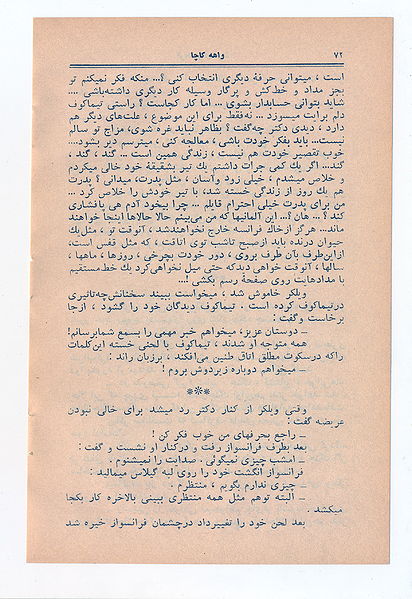 ۷۲
واهه کاچا
است ، میتوانی حرفهٔ دیگری انتخاب کنی ؟... منکه فکر نمیکنم تو
بجز مداد و خطکش و پرگار وسیله کار دیگری داشتهباشی ....
شاید بتوانی حسابدار بشوی ... اما کار کجاست ؟ راستی تیماکوف
دلم برایت میسوزد ... نهفقط برای این موضوع ، علتهای دیگر هم
دارد ، دیدی دکتر چهگفت ؟ بظاهر نباید غره شوی، مزاج تو سالم
نیست... باید بفکر خودت باشی ، معالجه کنی ، میترسم دیر بشود....
خوب تقصیر خودت هم نیست ، زندگی همین است ... گند ، گند ،
گند... اگر یك کمی جرات داشتم یك تیر بشقیقهٔ خود خالی میکردم
و خلاص میشدم ، خیلی زود وآسان ، مثل پدرت، میدانی ؟ پدرت
هم یك روز از زندگی خسته شد، با تیر خودش را خلاص کرد ...
من برای پدرت خیلی احترام قایلم ... چرا بیخود آدم هی پافشاری
کند ؟ ... هان ؟... این آلمانیها که من میبینم حالا حالاها اینجا خواهند
ماند... هرگز ازخاك فرانسه خارج نخواهندشد، آنوقت تو ، مثلیك
حیوان درنده باید ازصبح تاشب توی اتاقت ، که مثل قفس است،
ازاینطرف بآن طرف بروی ، دور خودت بچرخی ، روزها ، ماهها ،
سالها ، آنوقت خواهی دیدکه حتی میل نخواهیکرد یك خطمستقیم
با مدادهایت روی صفحهٔ رسم بکشی !...
ویلکر خاموش شد ، میخواست ببیند سخنانشچهتاثیری
درتیماکوف کرده است . تیماکوف دیدگان خود را گشود ، ازجا
برخاست وگفت :
ــ دوستان عزیز، میخواهم خبر مهمی را بسمع شمابرسانم!
همه متوجه او شدند ، تیماکوف با لحنی خسته اینکلمات
راکه درسکوت مطلق اتاق طنین میافکند ، برزبان راند :
ــ میخواهم دوباره زیردوش بروم !
***
وقتی ویلکر از کنار دکتر رد میشد برای خالی نبودن
عریضه گفت :
ــ راجع بحرفهای من خوب فکر کن !
بعد بطرف فرانسواز رفت و درکنار او نشست و گفت :
ــ امشب چیزی نمیگوئی . صدایت را نمیشنوم .
فرانسواز انگشت خود را روی لبه گیلاس میمالید :
ــ چیزی ندارم بگویم ، منتظرم .
ــ البته توهم مثل همه منتظری ببینی بالاخره کار بکجا
میکشد .
بعد لحن خود را تغییرداد درچشمان فرانسواز خیره شد